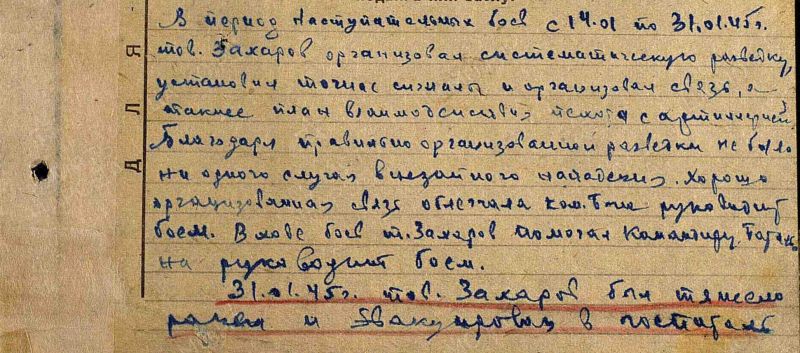 В период наступательных боев с 14.01 по 31.01.45г.
тов. Захаров организовал систематическую разведку,
установил точные сигналы и организовал связь, а
также план взаимодействия пехоты с артиллерией.
Благодаря правильно организованной разведки не было
ни одного случая внезапного нападения. Хорошо
организованная связь облегчала ком. б-на руководить
боем. В ходе боев т. Захаров помогал командиру батальо-
на руководить боем.
31.01.45г. тов. Захаров был тяжело
ранен и эвакуирован в госпиталь
ДЛЯ